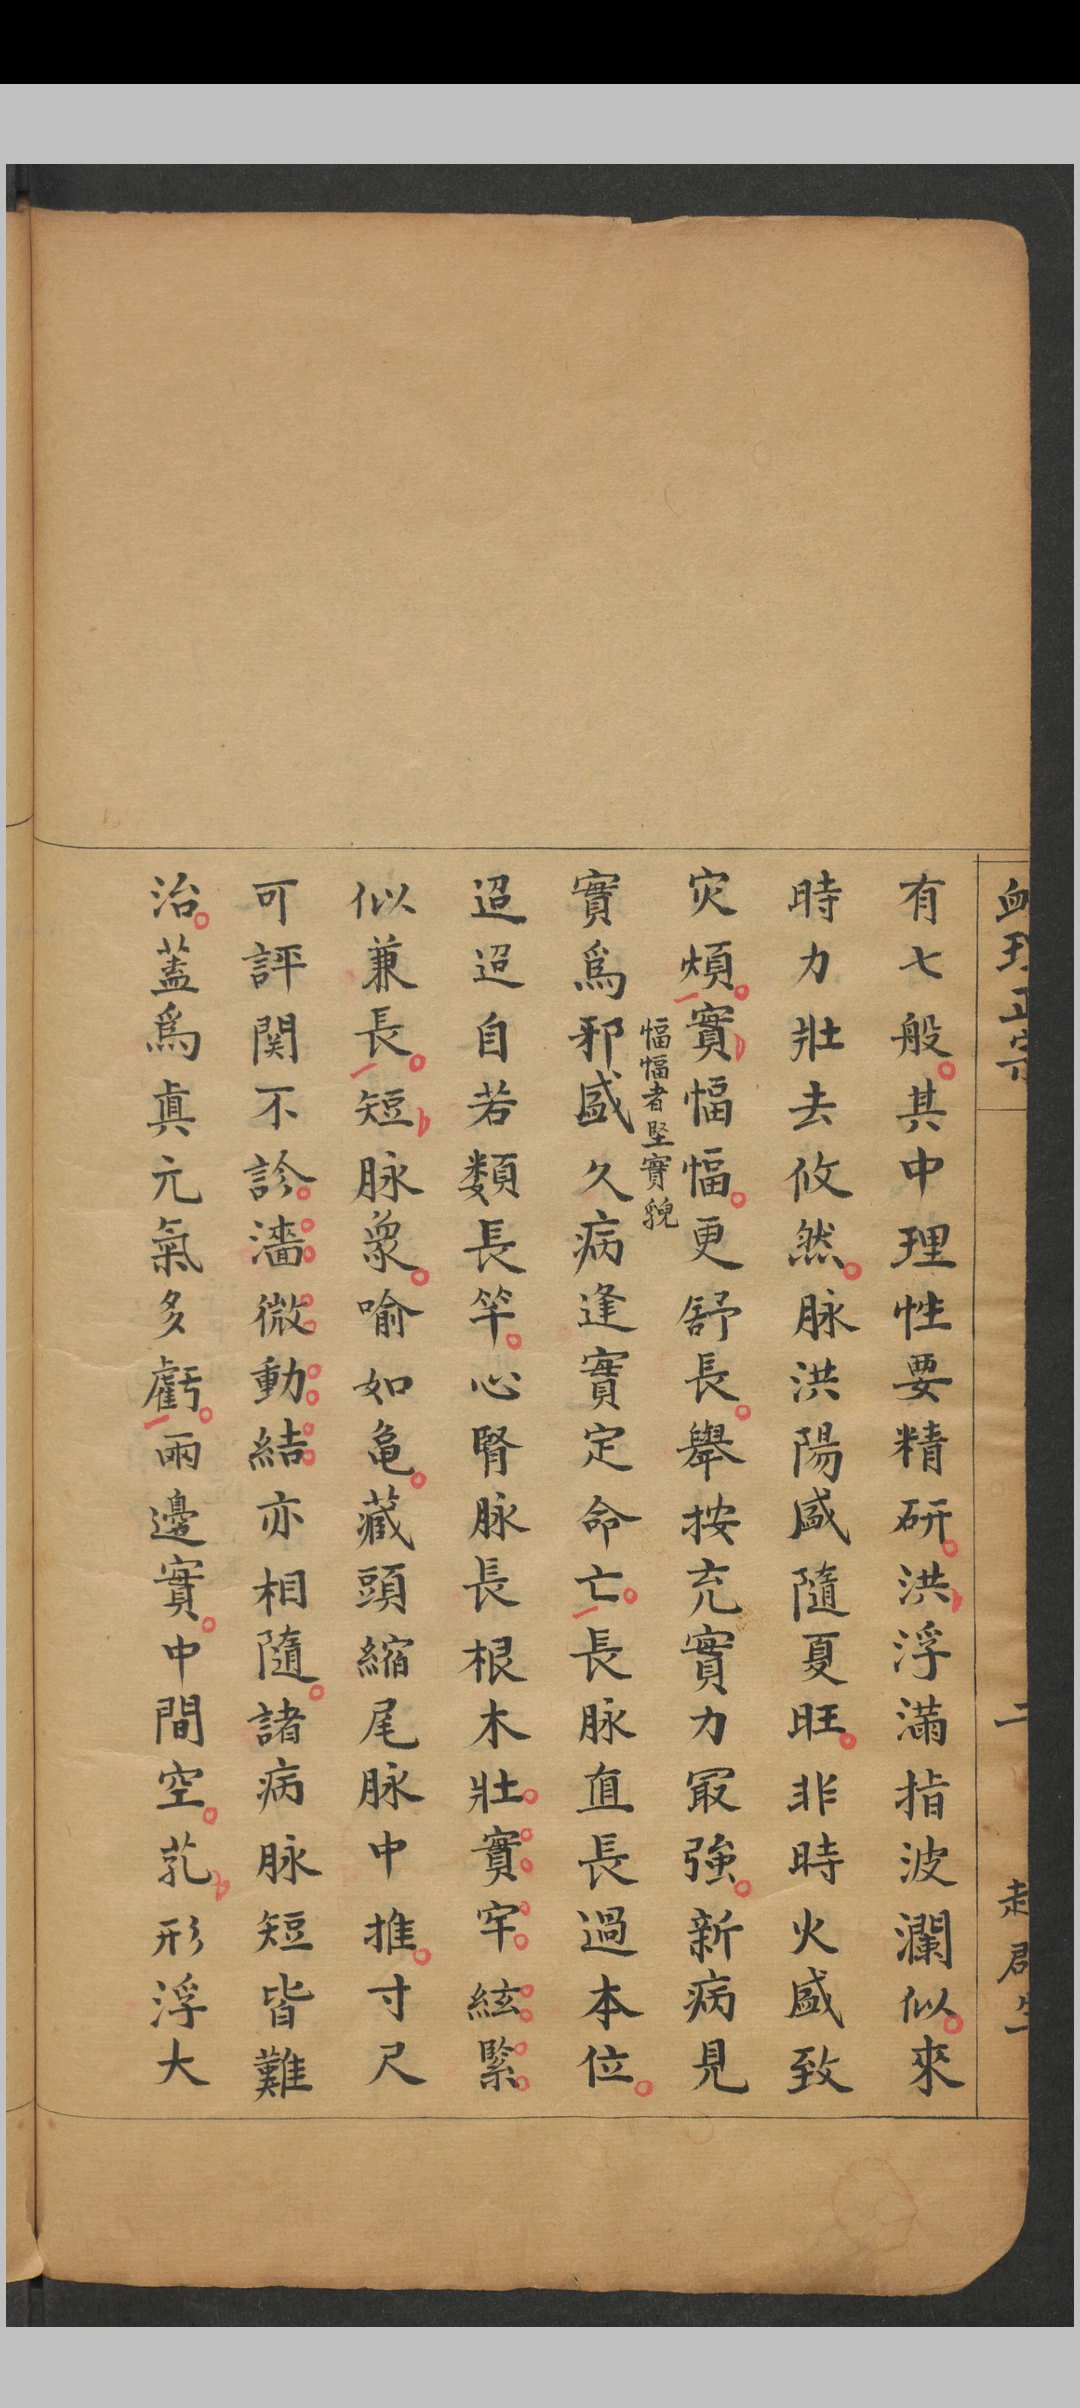 有七般其中理性要精研洪浮滿指波瀾似來
時力壯去攸然脉洪陽盛隨夏旺非時火盛致
灾煩實愊愊更舒長舉按充實力冣強新病見
愊愊者堅實貌
實爲邪盛久病逢實定命亡長脉直長過本位
迢迢自若類長竿心腎脉長根木壯實牢絃緊
似兼長短脉象喻如龜藏頭縮尾脉中推寸尺
可評関不診濇微動結亦相隨諸病脉短皆難
治蓋爲眞元氣多虧兩邊實中間空芤形浮大